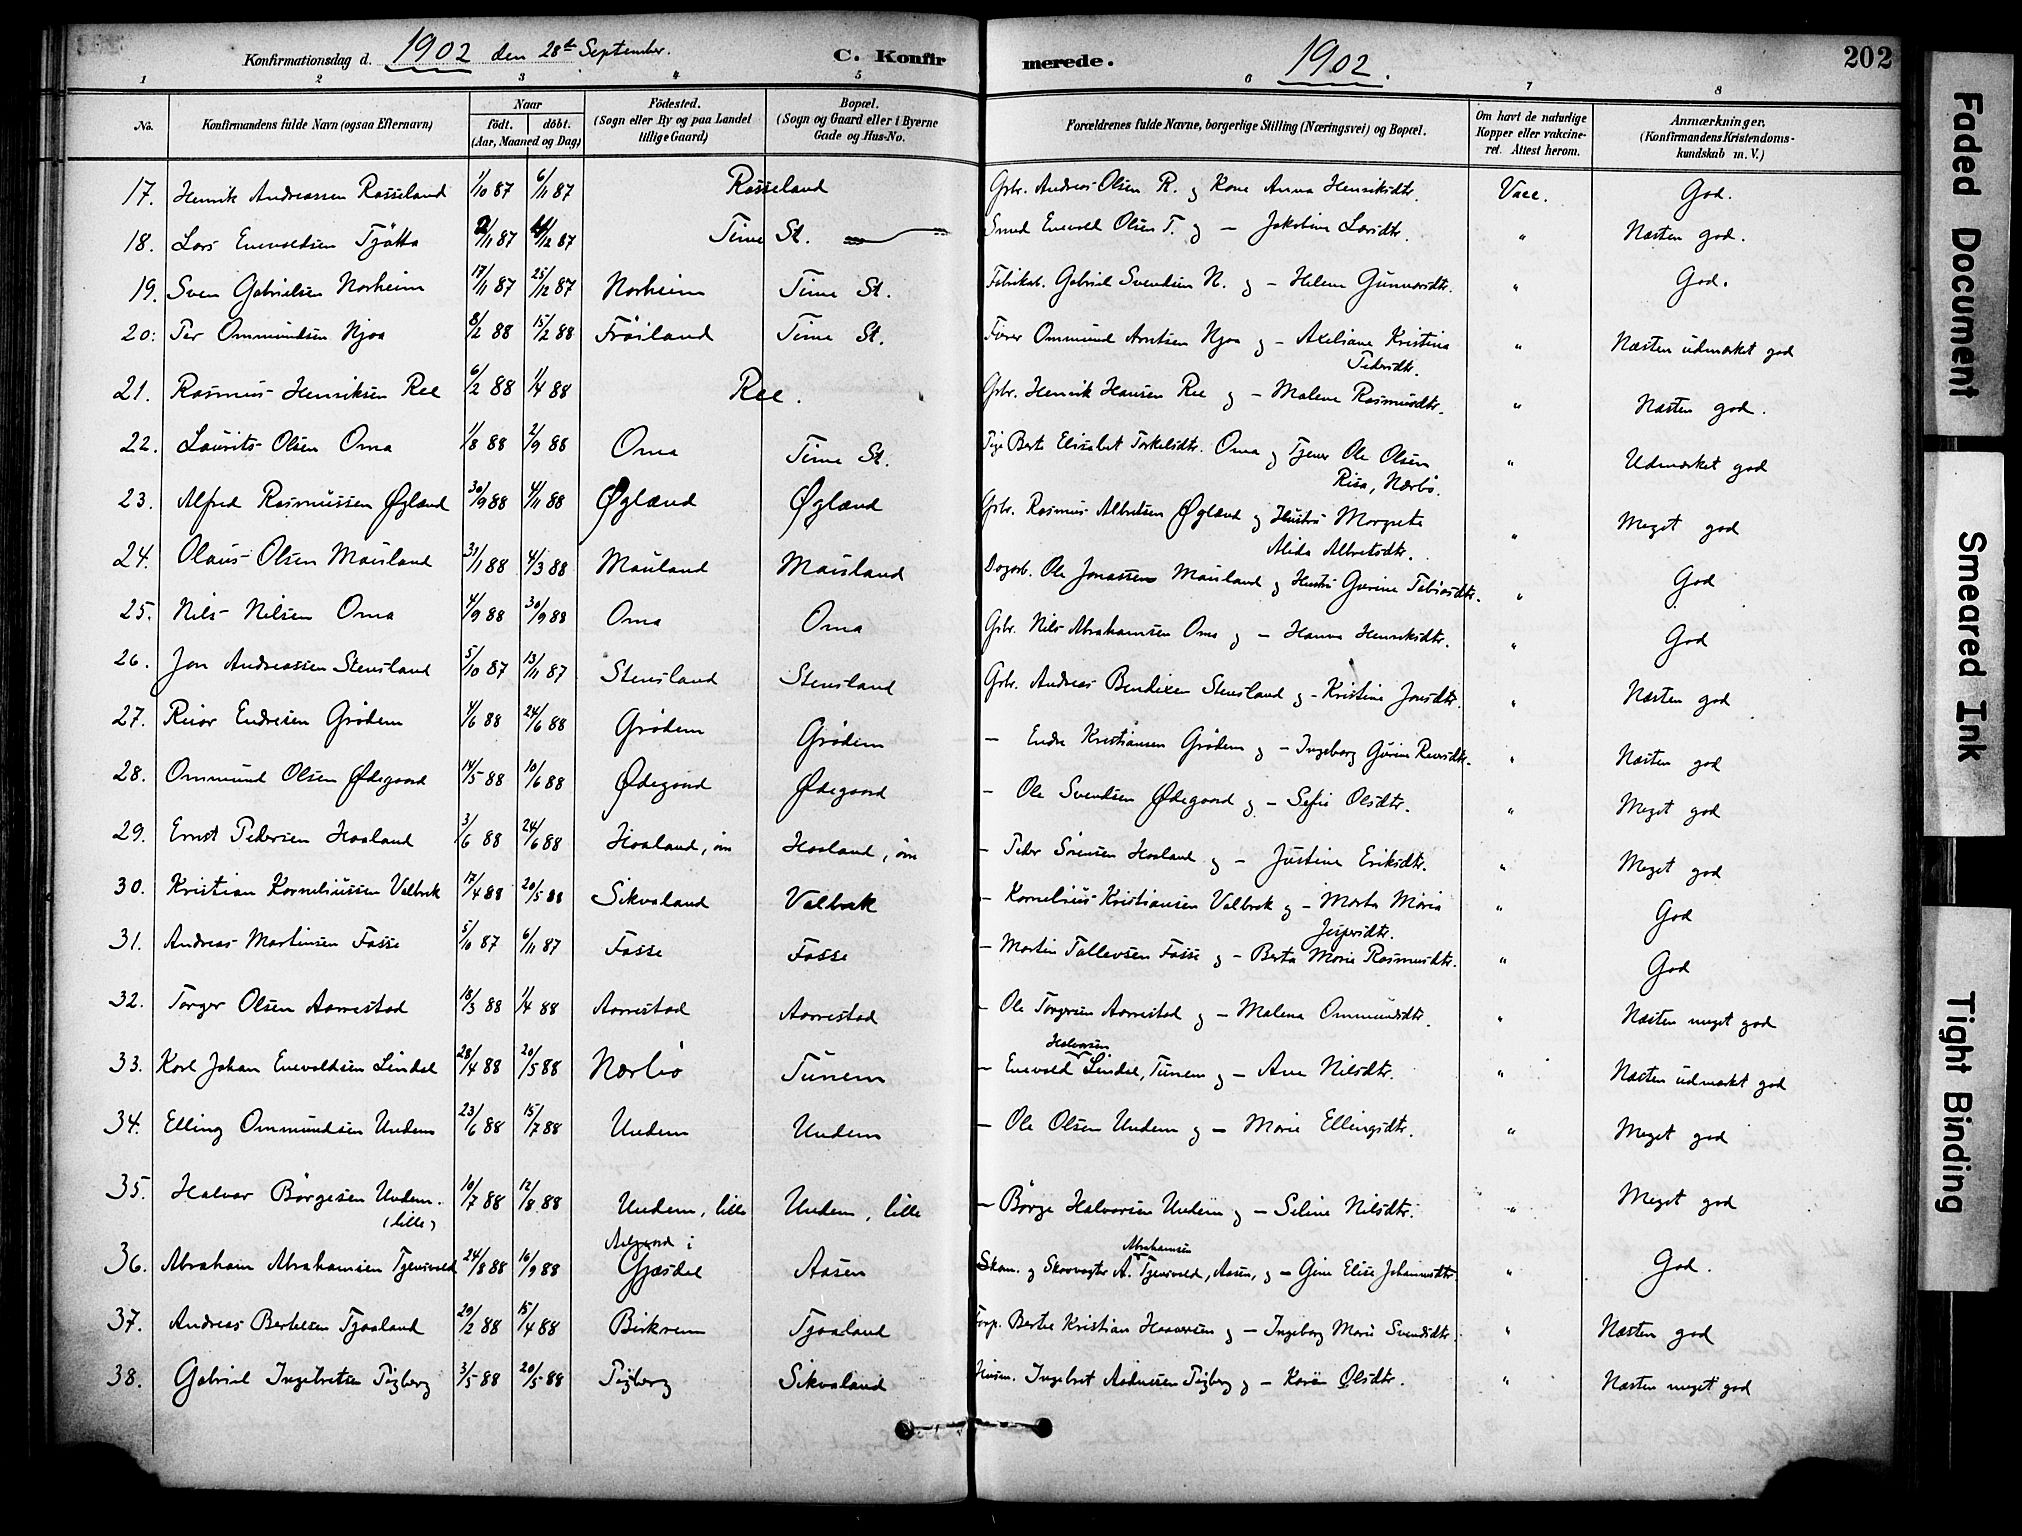 Konfirmationsdag d. 1902 den 28de September. C. Konfirmerede. 1902. 202
1 2 3 4 5 6 7 8
No. Konfirmandens fulde Navn (ogsaa Efternavn) Naar født. døbt. (Aar, Maaned og Dag) Fødested. (Sogn eller By og paa Landet tillige Gaard) Bopæl. (Sogn og Gaard eller i Byerne Gade og Hus-No. Forældrenes fulde Navne, borgerlige Stilling (Næringsvei) og Bopæl. Om havt de naturlige Kopper eller vakcineret. Attest herom. Anmærkninger. (Konfirmandens Kristendomskundskab m. V.)
17. Henrik Andreassen Rosseland 1/10 87 6/11 87 Rosseland Gbr. Andreas Olsen R. og Kone Anna Henriksdtr. Vacc. God.
18. Lars Enevoldsen Tjøtta 2/11 87 /12 87 Time St. Smed Enevold Olsen T. og — Jakobine Larsdtr. " Næsten god.
19. Sven Gabrielsen Norheim 17/11 87 25/12 87 Norheim Time St. Fabrikarb. Gabriel Svendsen N. og — Helene Gunnarsdtr. " God.
20. Per Ommundsen Njaa 8/2 88 15/2 88 Frøiland Time St. Ommund Arntsen Njaa og — Axeliane Kristina Pedersdtr. " Næsten udmærket god
21. Rasmus Henriksen Ree 6/2 88 1/4 88 Ree. Gbr. Henrik Hansen Ree og — Malene Rasmusdtr. " Næsten god.
22. Laurits Olsen Oma 1/8 88 2/9 88 Oma Time St. Pige Berte Elisabet Torkelsdtr. Oma og Tjener Ole Olsen Risa, Nærbø. " Udmærket god
23. Alfred Rasmussen Øgland 30/9 88 4/11 88 Øgland Øgland Gbr. Rasmus Albretsen Øgland og Hustru Margrete Alida Albretsdtr. " Meget god
24. Olaus Olsen Mausland 31/1 88 4/3 88 Mauland Mausland Dagarb. Ole Jonassen Mausland og Hustru Gurine Tobiasdtr. " God
25. Nils Nilsen Oma 4/9 88 30/9 88 Oma Oma Gbr. Nils Abrahamsen Oma og — Hanna Henriksdtr. " God
26. Jon Andreassen Stensland 5/10 87 13/11 87 Stensland Stensland Gbr. Andreas Bendixen Stensland og — Kristine Jonsdtr. " Næsten god
27. Reior Endresen Grødem 4/6 88 24/6 88 Grødem Grødem — Endre Kristiansen Grødem og — Ingeborg Gurine Reiersdtr. " Næsten god
28. Ommund Olsen Ødegaard 14/5 88 10/6 88 Ødegaard Ødegaard — Ole Svendsen Ødegaard og — Sofie Olsdtr. " Meget god
29. Ernst Pedersen Haaland 3/6 88 24/6 88 Haaland, øv Haaland, øv — Peder Sørensen Haaland og — Justine Eriksdtr. " Meget god
30. Kristian Korneliussen Valbrek 17/4 88 20/5 88 Sikvaland Valbrek — Kornelius Kristiansen Valbrek og — Marta Maria Jespersdtr. " God
31. Andreas Martinsen Fosse 5/10 87 6/11 87 Fosse Fosse — Martin Tollevsen Fosse og — Berta Marie Rasmusdtr. " God
32. Torger Olsen Aarrestad 18/3 88 1/4 88 Aarrestad Aarrestad — Ole Torgersen Aarrestad og — Malena Ommundsdtr. " Næsten meget god
33. Karl Johan Enevoldsen Lindal 28/4 88 20/5 88 Nærbø Tunem — Enevold Halvorsen Lindal, Tunem og — Ane Nilsdtr. " Næsten udmærket god
34. Elling Ommundsen Undem 23/6 88 15/7 88 Undem Undem — Ole Olsen Undem og — Marie Ellingsdtr. " Meget god
35. Halvor Børgesen Undem. (lille) 10/7 88 12/8 88 Undem, lille Undem, lille — Børge Halvorsen Undem og — Seline Nilsdtr. " Meget god
36. Abraham Abrahamsen Tjensvold 24/8 88 16/9 88 Aalgaard i Gjæsdal Aasen Skom. og Skovvogter A. Abrahamsen Tjensvold, Aasen, og — Gine Elise Johannesdtr. " God.
37. Andreas Bertelsen Tjaaland 29/2 88 15/4 88 Birkrem Tjaaland Forp. Bertel Kristian Haaversen og — Ingeborg Marie Svendsdtr. " Næsten god
38. Gabriel Ingebretsen Tjzberg 3/5 88 20/5 88 Tjzberg Sikvaland Husm. Ingebret Aadnesen Tjzberg og — Karen Olsdtr. " Næsten meget god
Faded Document
Smeared Ink
Tight Binding